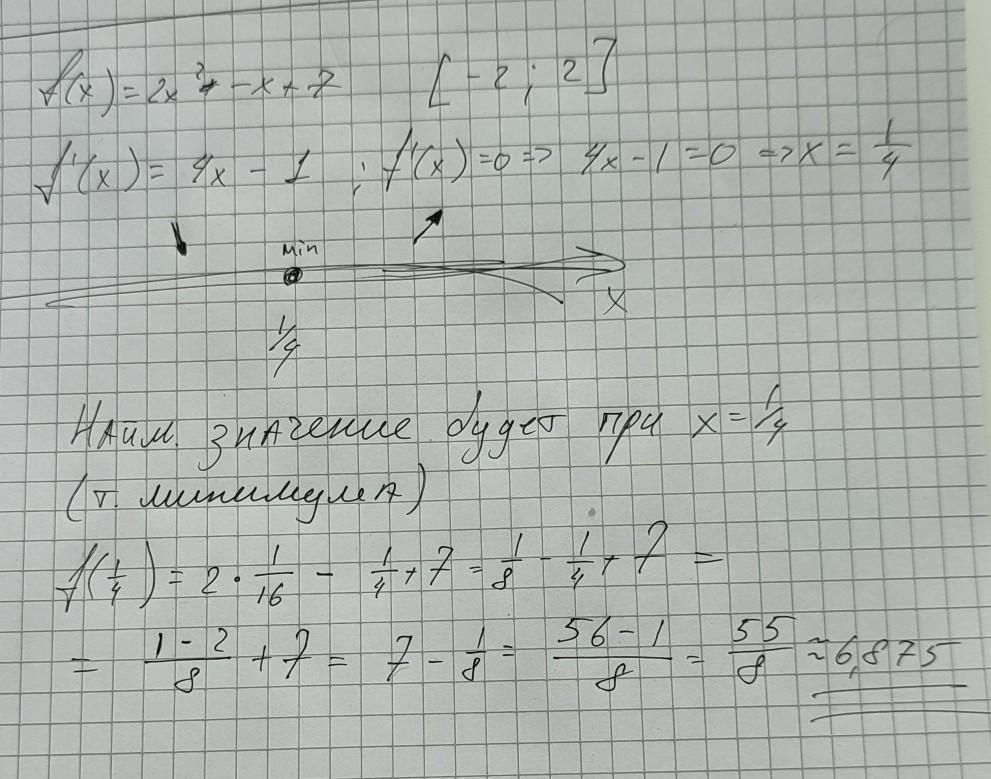 f(x) = 2x² - x + 7 [-2; 2]
f'(x) = 4x - 1 ; f'(x) = 0 => 4x - 1 = 0 => x = 1/4
min
x
1/4
Наим. значение будет при x = 1/4
(т. минимума)
f(1/4) = 2 · 1/16 - 1/4 + 7 = 1/8 - 1/4 + 7 =
= (1 - 2)/8 + 7 = 7 - 1/8 = (56 - 1)/8 = 55/8 ≈ 6,875